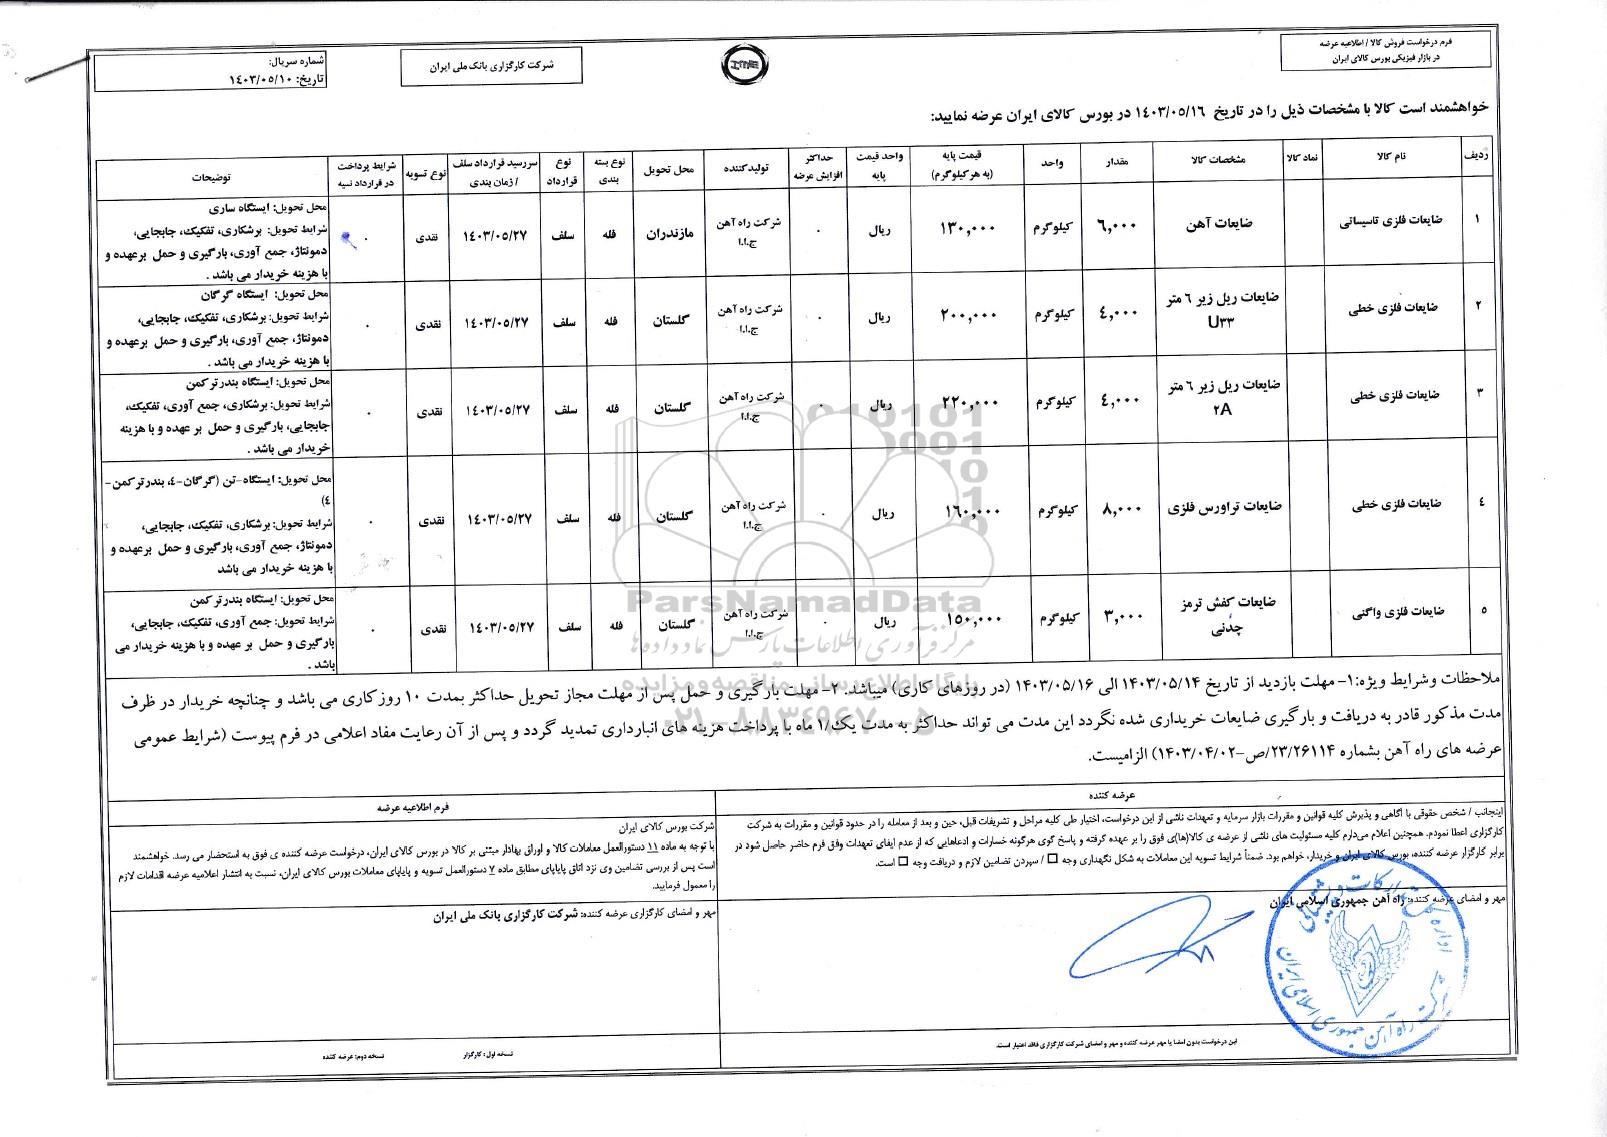 فرم درخواست فروش کالا / اطلاعیه عرضه
در بازار فیزیکی بورس کالای ایران
شرکت کارگزاری بانک ملی ایران
شماره سریال:
تاریخ: ۱۴۰۳/۰۵/۱۰
خواهشمند است کالا با مشخصات ذیل را در تاریخ ۱۴۰۳/۰۵/۱۶ در بورس کالای ایران عرضه نمایید:
ردیف | نام کالا | نماد کالا | مشخصات کالا | مقدار | واحد | قیمت پایه (به هر کیلوگرم) | واحد قیمت پایه | حداکثر افزایش عرضه | تولیدکننده | محل تحویل | نوع بسته بندی | نوع قرارداد | سررسید قرارداد سلف / زمان بندی | نوع تسویه | شرایط پرداخت در قرارداد نسیه | توضیحات
۱ | ضایعات فلزی تاسیساتی | ضایعات آهن | ۶,۰۰۰ | کیلوگرم | ۱۳۰,۰۰۰ | ریال | ۰ | شرکت راه آهن ج.ا.ا | مازندران | فله | سلف | ۱۴۰۳/۰۵/۲۷ | نقدی | ۰
محل تحویل: ایستگاه ساری
شرایط تحویل: برشکاری، تفکیک، جابجایی،
دمونتاژ، جمع آوری، بارگیری و حمل برعهده و
با هزینه خریدار می باشد .
۲ | ضایعات فلزی خطی | ضایعات ریل زیر ۶ متر U۳۳ | ۴,۰۰۰ | کیلوگرم | ۲۰۰,۰۰۰ | ریال | ۰ | شرکت راه آهن ج.ا.ا | گلستان | فله | سلف | ۱۴۰۳/۰۵/۲۷ | نقدی | ۰
محل تحویل: ایستگاه گرگان
شرایط تحویل: برشکاری، تفکیک، جابجایی،
دمونتاژ، جمع آوری، بارگیری و حمل برعهده و
با هزینه خریدار می باشد .
۳ | ضایعات فلزی خطی | ضایعات ریل زیر ۶ متر ۲A | ۴,۰۰۰ | کیلوگرم | ۲۲۰,۰۰۰ | ریال | ۰ | شرکت راه آهن ج.ا.ا | گلستان | فله | سلف | ۱۴۰۳/۰۵/۲۷ | نقدی | ۰
محل تحویل: ایستگاه بندرترکمن
شرایط تحویل: برشکاری، جمع آوری، تفکیک،
جابجایی، بارگیری و حمل بر عهده و با هزینه
خریدار می باشد .
۴ | ضایعات فلزی خطی | ضایعات تراورس فلزی | ۸,۰۰۰ | کیلوگرم | ۱۶۰,۰۰۰ | ریال | ۰ | شرکت راه آهن ج.ا.ا | گلستان | فله | سلف | ۱۴۰۳/۰۵/۲۷ | نقدی | ۰
محل تحویل: ایستگاه-تن (گرگان-۴، بندرترکمن-
۴)
شرایط تحویل: برشکاری، تفکیک، جابجایی،
دمونتاژ، جمع آوری، بارگیری و حمل برعهده و
با هزینه خریدار می باشد
۵ | ضایعات فلزی واگنی | ضایعات کفش ترمز چدنی | ۳,۰۰۰ | کیلوگرم | ۱۵۰,۰۰۰ | ریال | ۰ | شرکت راه آهن ج.ا.ا | گلستان | فله | سلف | ۱۴۰۳/۰۵/۲۷ | نقدی | ۰
محل تحویل: ایستگاه بندرترکمن
شرایط تحویل: جمع آوری، تفکیک، جابجایی،
بارگیری و حمل بر عهده و با هزینه خریدار می
باشد .
ParsNamadData
مرکز فرآوری اطلاعات پارس نماد داده ها
پایگاه اطلاع رسانی مناقصه و مزایده
۰۲۱-۸۸۳۴۹۶۷۰-۵
ملاحظات وشرایط ویژه: ۱- مهلت بازدید از تاریخ ۱۴۰۳/۰۵/۱۴ الی ۱۴۰۳/۰۵/۱۶ (در روزهای کاری) میباشد. ۲- مهلت بارگیری و حمل پس از مهلت مجاز تحویل حداکثر بمدت ۱۰ روز کاری می باشد و چنانچه خریدار در ظرف
مدت مذکور قادر به دریافت و بارگیری ضایعات خریداری شده نگردد این مدت می تواند حداکثر به مدت یک/۱ ماه با پرداخت هزینه های انبارداری تمدید گردد و پس از آن رعایت مفاد اعلامی در فرم پیوست (شرایط عمومی
عرضه های راه آهن بشماره ۲۳/۲۶۱۱۴/ص-۱۴۰۳/۰۴/۰۲) الزامیست.
عرضه کننده
اینجانب / شخص حقوقی با آگاهی و پذیرش کلیه قوانین و مقررات بازار سرمایه و تعهدات ناشی از این درخواست، اختیار طی کلیه مراحل و تشریفات قبل، حین و بعد از معامله را در حدود قوانین و مقررات به شرکت
کارگزاری اعطا نمودم. همچنین اعلام می‌دارم کلیه مسئولیت های ناشی از عرضه ی کالا(ها)ی فوق را بر عهده گرفته و پاسخ گوی هرگونه خسارات و ادعاهایی که از عدم ایفای تعهدات وفق فرم حاضر حاصل شود در
برابر کارگزار عرضه کننده، بورس کالای ایران و خریدار، خواهم بود. ضمناً شرایط تسویه این معاملات به شکل نگهداری وجه □ / سپردن تضامین لازم و دریافت وجه □ است.
مهر و امضای عرضه کننده: راه آهن جمهوری اسلامی ایران
اداره کل تدارکات و پشتیبانی
شرکت راه آهن جمهوری اسلامی ایران
فرم اطلاعیه عرضه
شرکت بورس کالای ایران
با توجه به ماده ۱۱ دستورالعمل معاملات کالا و اوراق بهادار مبتنی بر کالا در بورس کالای ایران، درخواست عرضه کننده ی فوق به استحضار می رسد. خواهشمند
است پس از بررسی تضامین وی نزد اتاق پایاپای مطابق ماده ۷ دستورالعمل تسویه و پایاپای معاملات بورس کالای ایران، نسبت به انتشار اعلامیه عرضه اقدامات لازم
را معمول فرمایید.
مهر و امضای کارگزاری عرضه کننده: شرکت کارگزاری بانک ملی ایران
این درخواست بدون امضا یا مهر عرضه کننده و مهر و امضای شرکت کارگزاری فاقد اعتبار است.
نسخه اول: کارگزار
نسخه دوم: عرضه کننده